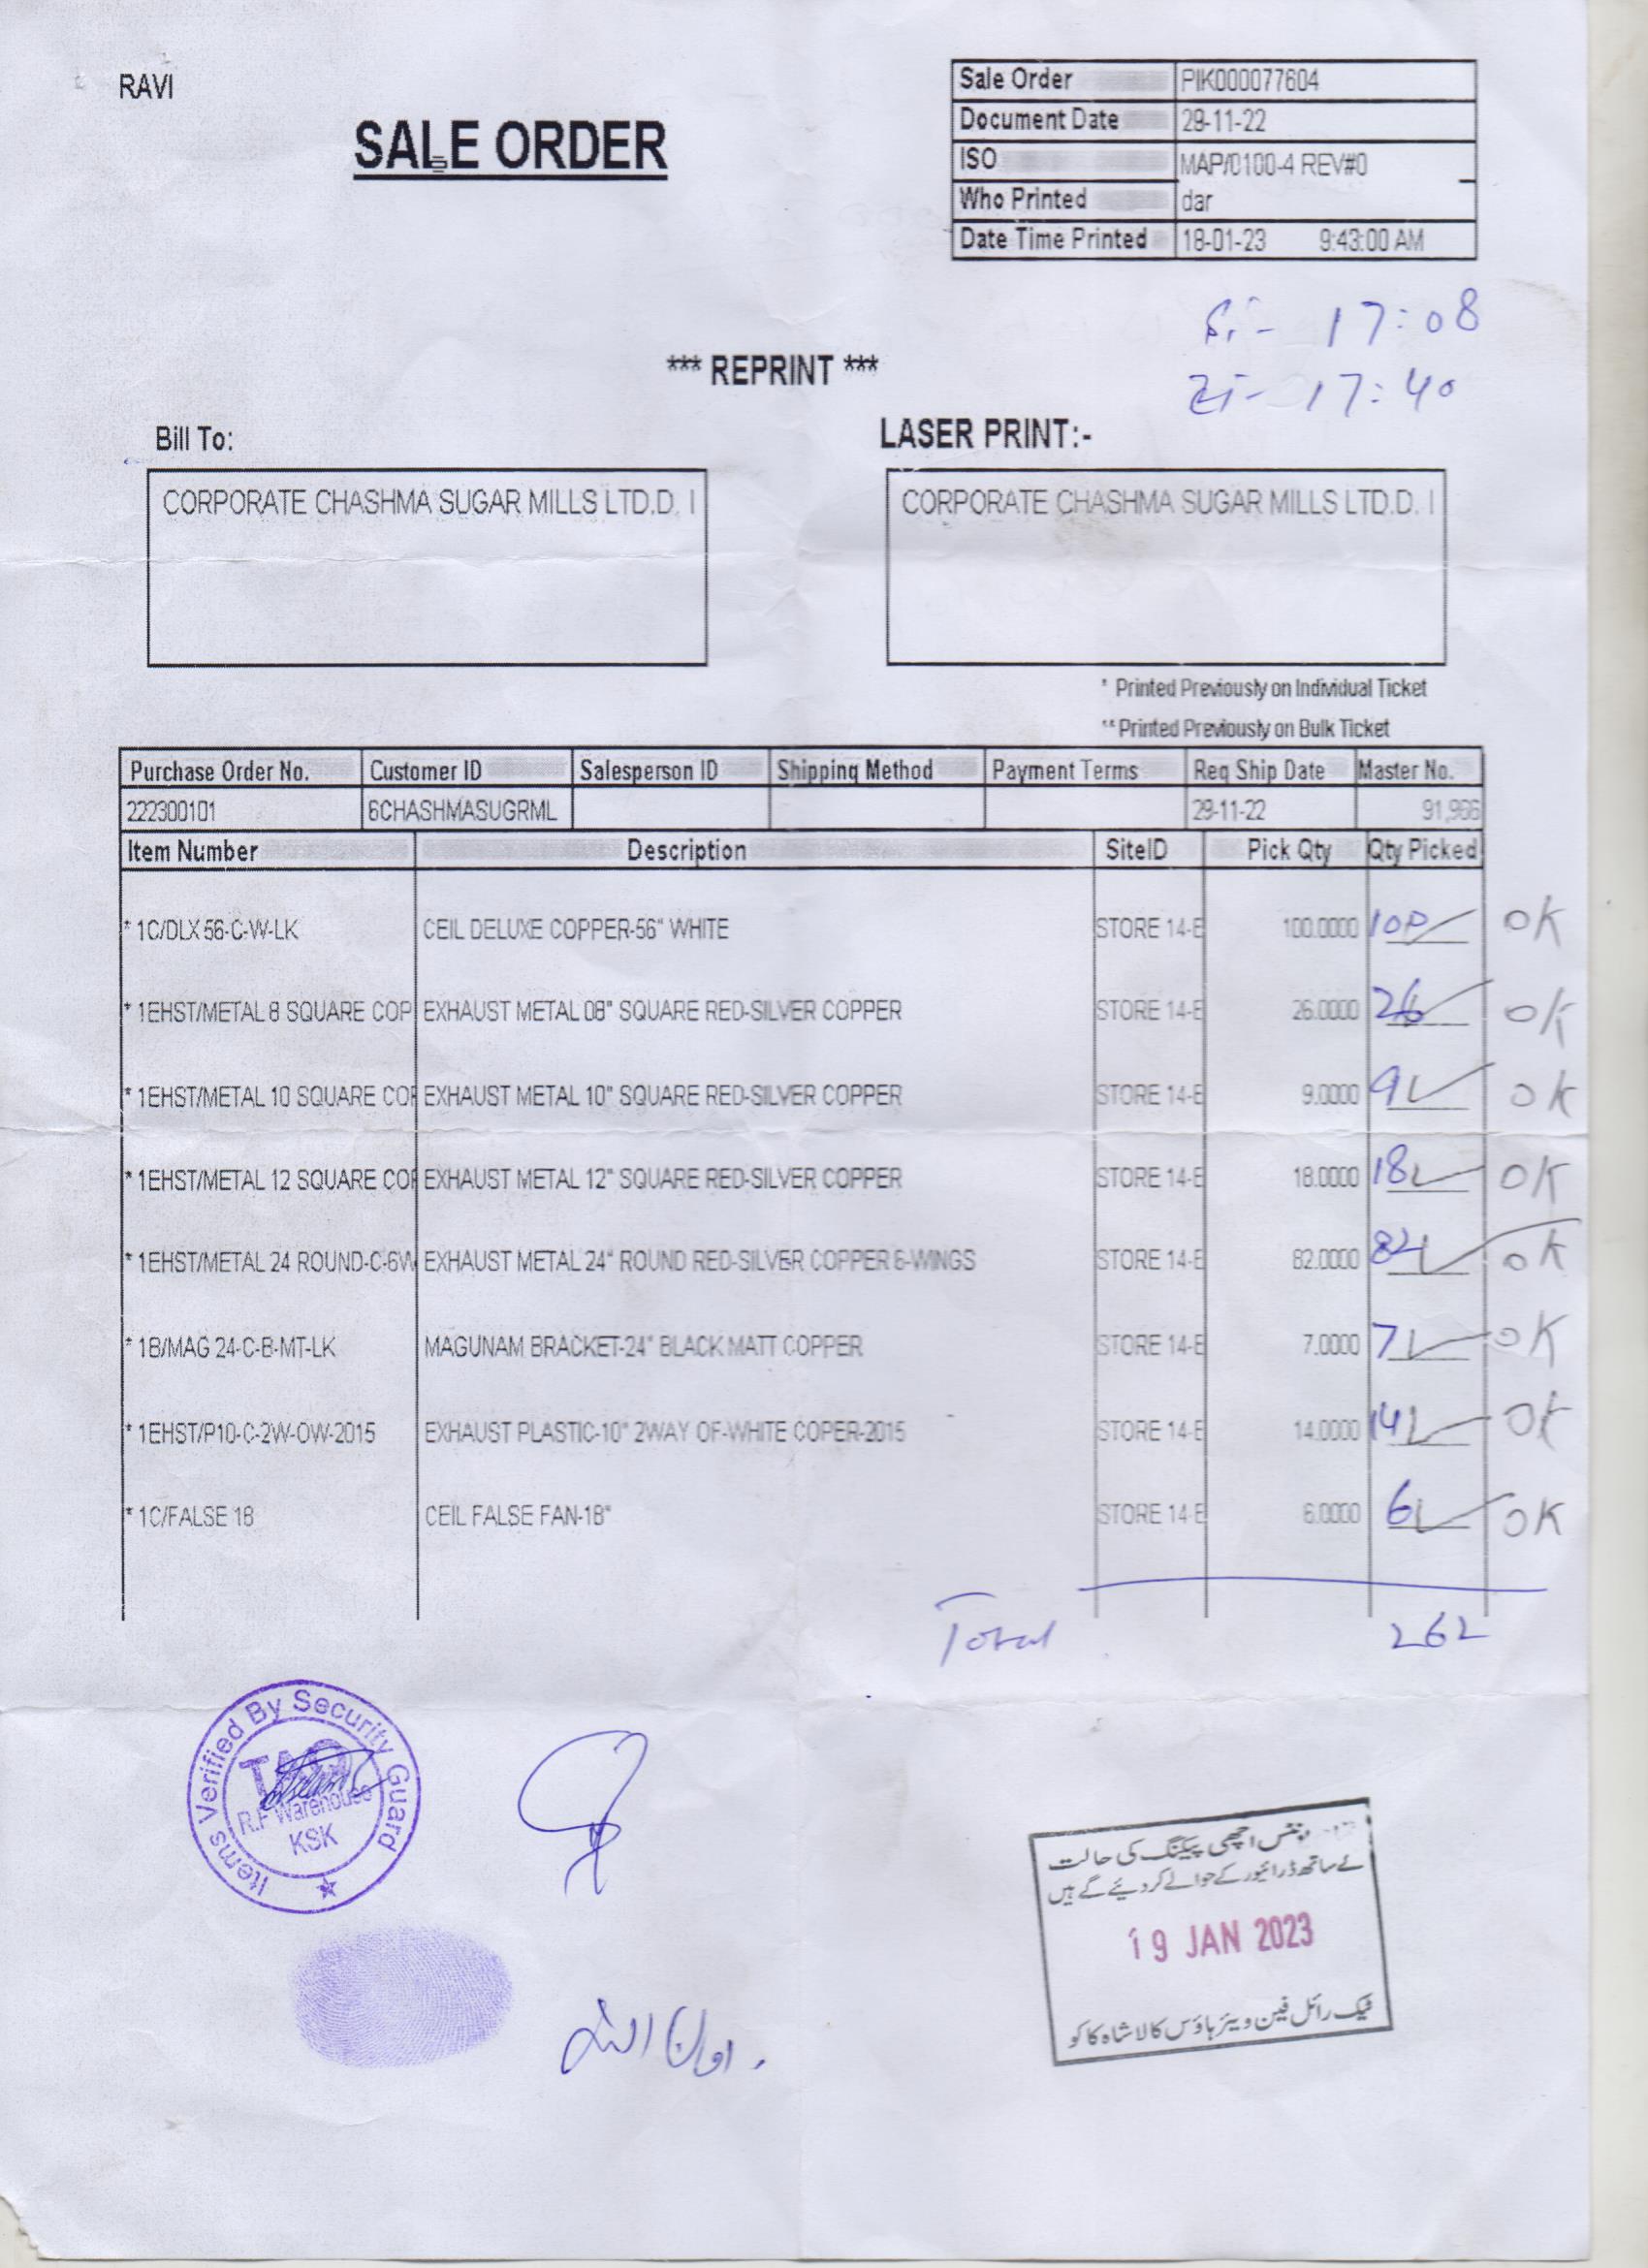 RAVI
SALE ORDER
Sale Order PIK000077604
Document Date 29-11-22
ISO MAP/0100-4 REV#0
Who Printed dar
Date Time Printed 18-01-23 9:43:00 AM
17:08
17:40
*** REPRINT ***
Bill To:
LASER PRINT:-
CORPORATE CHASHMA SUGAR MILLS LTD.D. I
CORPORATE CHASHMA SUGAR MILLS LTD.D. I
* Printed Previously on Individual Ticket
** Printed Previously on Bulk Ticket
Purchase Order No. Customer ID Salesperson ID Shipping Method Payment Terms Req Ship Date Master No.
222300101 6CHASHMASUGRML 29-11-22 91,966
Item Number Description SiteID Pick Qty Qty Picked
* 1C/DLX 56-C-W-LK CEIL DELUXE COPPER-56" WHITE STORE 14-E 100.0000 100 OK
* 1EHST/METAL 8 SQUARE COP EXHAUST METAL 08" SQUARE RED-SILVER COPPER STORE 14-E 26.0000 26 OK
* 1EHST/METAL 10 SQUARE COP EXHAUST METAL 10" SQUARE RED-SILVER COPPER STORE 14-E 9.0000 9 OK
* 1EHST/METAL 12 SQUARE COP EXHAUST METAL 12" SQUARE RED-SILVER COPPER STORE 14-E 18.0000 18 OK
* 1EHST/METAL 24 ROUND-C-6W EXHAUST METAL 24" ROUND RED-SILVER COPPER 6-WINGS STORE 14-E 82.0000 82 OK
* 1B/MAG 24-C-B-MT-LK MAGUNAM BRACKET-24" BLACK MATT COPPER STORE 14-E 7.0000 7 OK
* 1EHST/P10-C-2W-OW-2015 EXHAUST PLASTIC-10" 2WAY OF-WHITE COPER-2015 STORE 14-E 14.0000 14 OK
* 1C/FALSE 18 CEIL FALSE FAN-18" STORE 14-E 6.0000 6 OK
Total 262
Items Verified By Security Guard
R.F Warehouse
KSK
اچھی پیکنگ کی حالت
کے ساتھ ڈرائیور کے حوالے کر دیئے گے ہیں
19 JAN 2023
رائل فین ویئر ہاؤس کالا شاہ کاکو